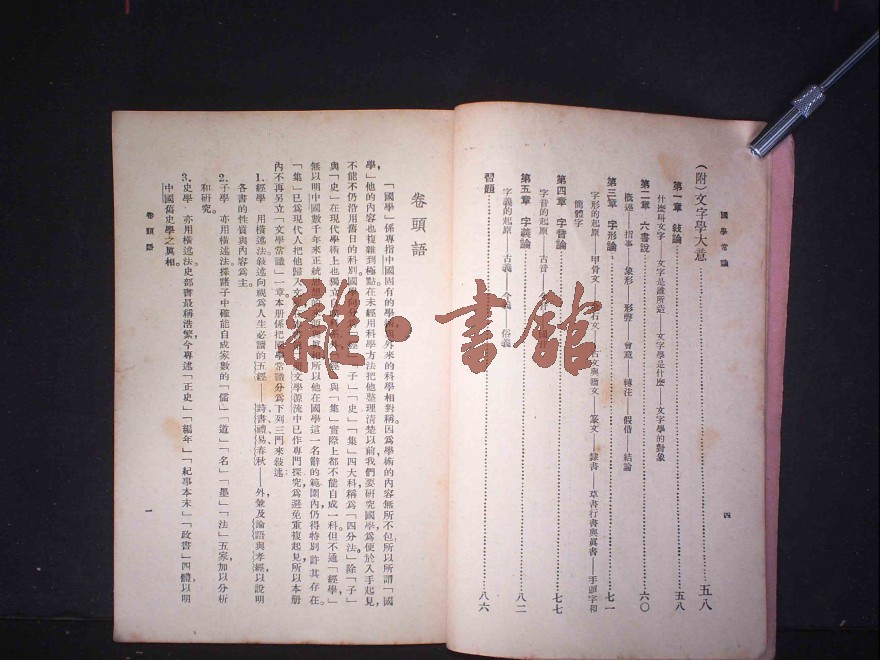 國學常識
四
（附）文字學大意……五八
第一章 敍論……五八
什麽叫文字——文字是誰所造——文字學是什麽——文字學的對象
第二章 六書說……六〇
概述——指事——象形——形聲——會意——轉注——假借——結論
第三章 字形論……七一
字形的起原——甲骨文——石文——古文與籀文——篆文——隸書——草書行書與眞書——手頭字和
簡體字
第四章 字音論……七七
字音的起原——古音——
第五章 字義論……八二
字義的起原——古義——今義——俗義
習題……八六
卷頭語
「國學」係專指中國固有的學術與外來的科學相對稱。因爲學術的內容無所不包，所以所謂「國
學，」他的內容也複雜到極點。在未經用科學方法把他整理清楚以前，我們要研究國學，爲便於入手起見，
不能不仍沿用舊日的科別。國學向分「經」「子」「史」「集」四大科，稱爲「四分法。」除「子」
與「史」在現代學術上也獨立「集」實際上都不能自成一科。但不通「經學」
無以明中國數千年來正統思想所以他在國學這一名辭的範圍內，仍得特別許其存在。
「集」已爲現代人把他歸入文文學源流中已作專門探究，爲避免重複起見，所以本册
內不再另立「文學常識」一章。本册係把國學常識分爲下列三門來敍述：
1. 經學 用橫述法，敍述向視爲人生必讀的五經——詩、書、禮、易、春秋——外，兼及論語與孝經，以說明
各書的性質與內容爲主。
2. 子學 亦用橫述法，擇諸子中確能自成家數的「儒」「道」「名」「墨」「法」五家加以分析
和研究。
3. 史學 亦用橫述法。史部書最稱浩繁，今專述「正史」「編年」「紀事本末」「政書」四體，以明
中國舊史學之眞相。
卷頭語
一
雜·書館